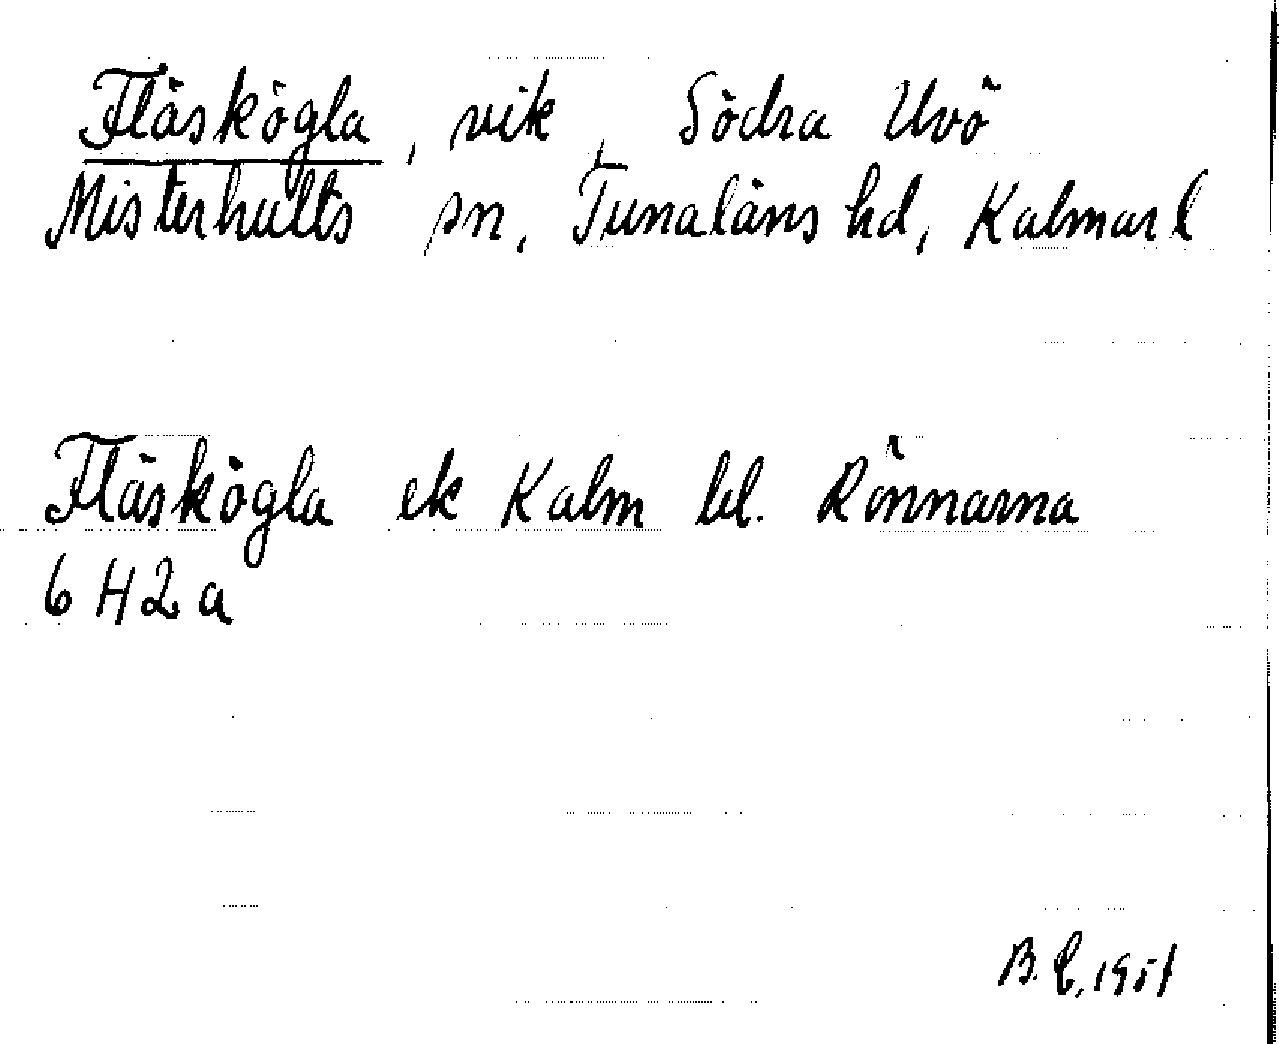 Fläskögla, vik, Södra Uvö
Misterhults sn, Tunaläns hd, Kalmar l
Fläskögla ek Kalm bl. Rönnarna
6 H 2 a
B. L, 1951